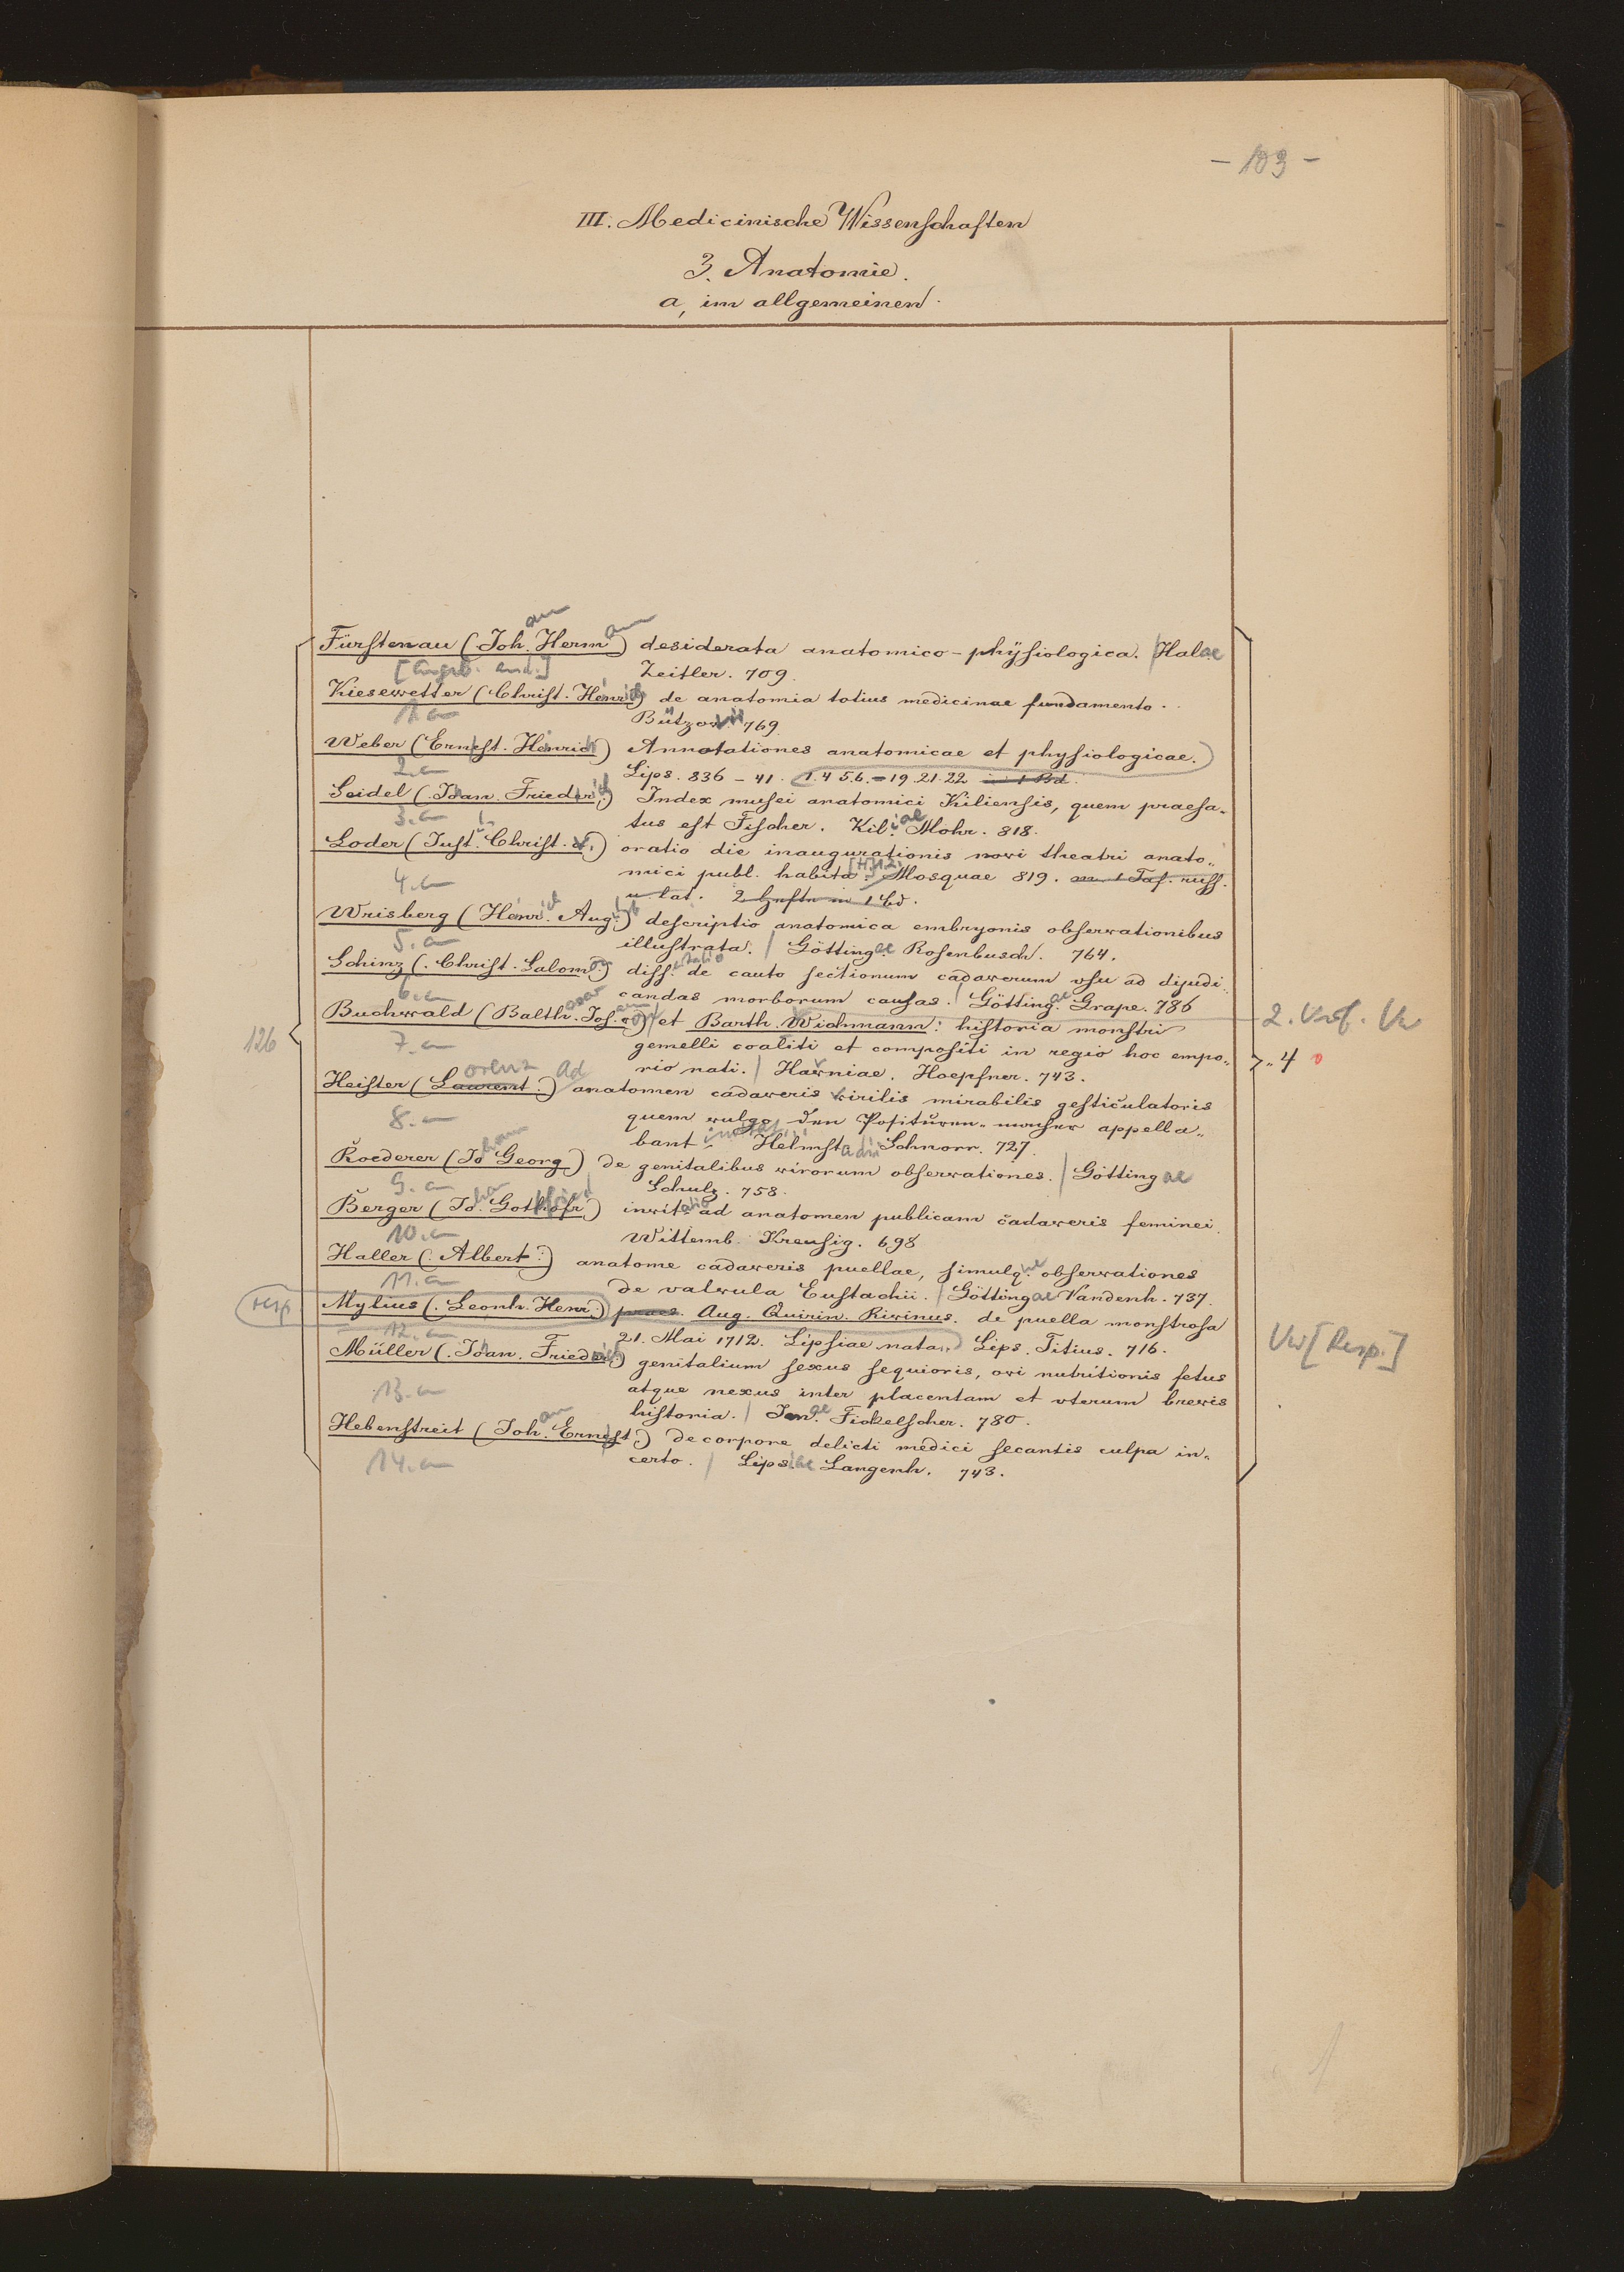 - 103 -
III. Medicinische Wissenschaften
3. Anatomie.
a, im allgemeinen.
Fürstenau (Joh.ann Hermann) desiderata anatomico-physiologica. | Halae
Zeitler. 709.
Kiesewetter (Christ. Henrich) de anatomia totius medicinae fundamento.
1. a
Bützovii 769
Weber (Ernst. Heinrich) Annotationes anatomicae et physiologicae.
2. a
Lips. 836 - 41. 1. 4 5. 6. - 19. 21. 22 in 1 Bd.
Seidel (Joan. Friedrich) Index musei anatomici Kiliensis, quem praefa-
3. a
tus est Fischer. Kiliae Mohr. 818.
Loder (Just. Christ. v.) oratio die inaugurationis novi theatri anato„
mici publ. habita. Mosquae 819. m. 1 Taf. russ.
4. a
u. lat. 2 Hefte in 1 Bd.
Wrisberg (Henr. Aug.) descriptio anatomica embryonis observationibus
5. a
illustrata. | Göttingae Rosenbusch. 764.
Schinz (Christ. Salomon) dissertatio de cauto sectionum cadaverum usu ad dijudi„
6. a
candas morborum causas. | Göttingae Grape. 786
Buchwald (Balth. Joh. a) et Barth. Wichmann: historia monstri
2. Verf. Vw
7. a
gemelli coaliti et compositi in regio hoc empo„
126
7„ 4
rio nati. | Havniae. Hoepfner. 743.
Heister (Lorenz) Ad anatomen cadaveris virilis mirabilis gesticulatoris
8. a
quem vulgo den Posituren-macher appella„
bant Helmstadii Schnorr. 727.
Roederer (Johann Georg) de genitalibus virorum observationes. | Göttingae
9. a
Schulz. 758.
Berger (Joh. Gottfried) invitatio ad anatomen publicam cadaveris feminei.
10. a
Wittemb. Kreusig. 698
Haller (Albert) anatome cadaveris puellae, simulque observationes
11. a
de valvula Eustachii. | Göttingae Vandenh. 737.
resp. Mylius (Leonh. Henr.) praes. Aug. Quirin. Rivinus. de puella monstrosa
12. a
21. Mai 1712. Lipsiae nata„ Lips. Titius. 716.
Vw [Resp.]
Müller (Joan. Friedrich) genitalium sexus sequioris, ovi nutritionis fetus
13. a
atque nexus inter placentam et vterum brevis
historia. | Jenae Fickelscher. 780.
Hebenstreit (Johann Ernest.) de corpore delicti medici secantis culpa in„
14. a
certo. | Lipsiae Langenh. 743.
1